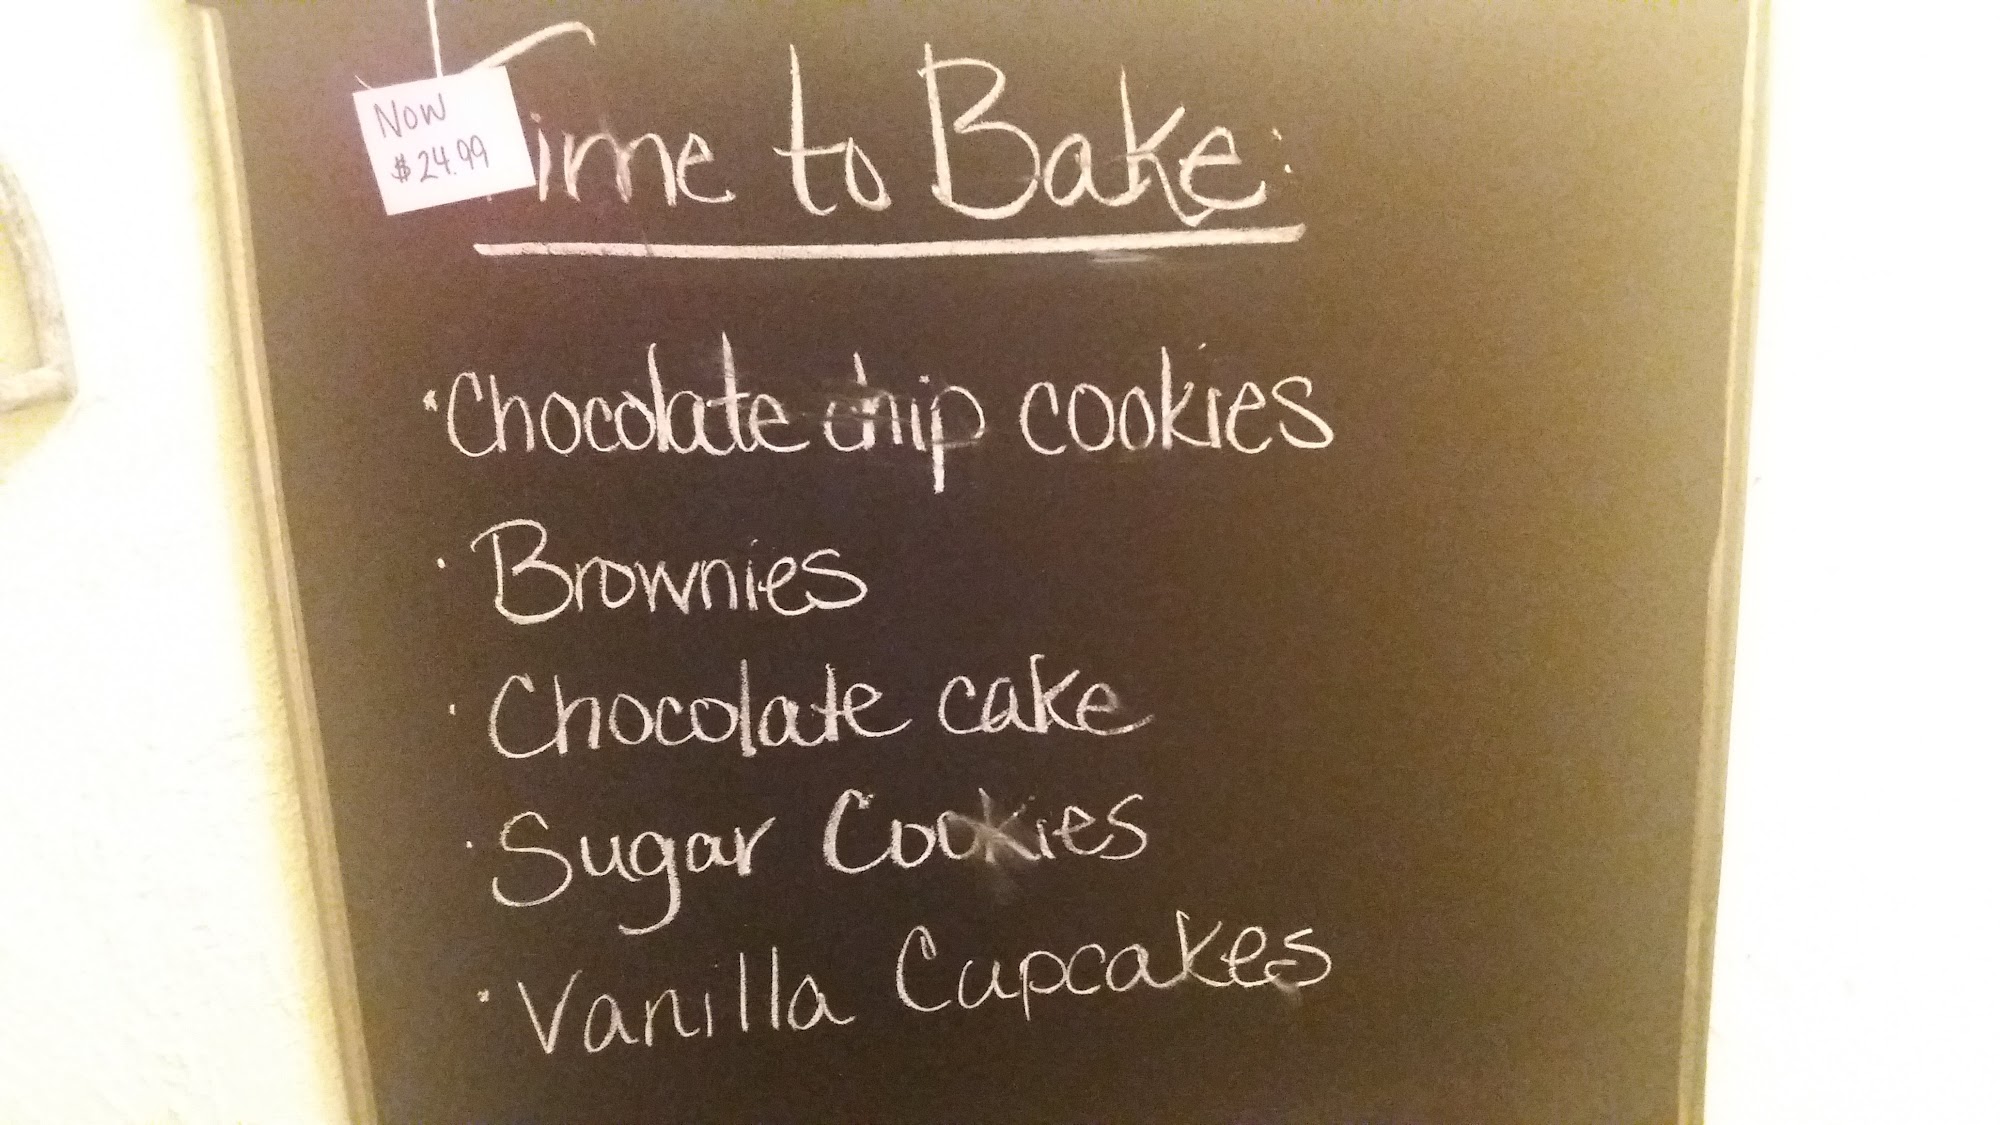 Now
$24.99
Time to Bake:
·Chocolate chip cookies
·Brownies
·Chocolate cake
·Sugar Cookies
·Vanilla Cupcakes